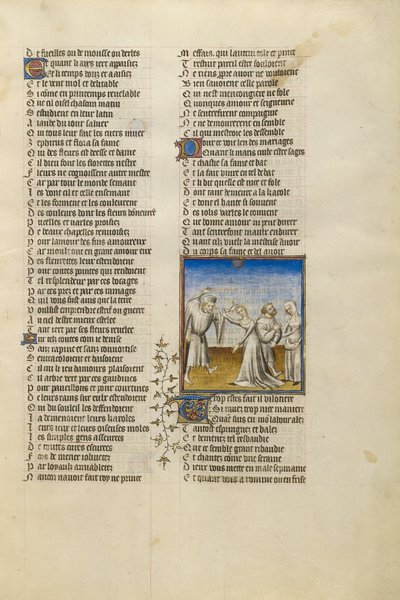 De fueilles ou de mousse ou derbes
Et quant li airs iert appaisiez
Et li temps douz et aaisiez
Et le vent mol et delitable
Si come en printemps
Que cil oisel chascun matin
Sestudient en leur latin
A laube du iour saluer
Qui tous leur fait les cuers muer
Zephirus et flora sa fame
Qui des fleurs est deesse et dame
Cil dieu font les florettes nestre
Fleurs ne cognoissent autre mestre
Car par tout le monde semant
Les vont cil et celle ensemant
Et les forment et les couleurent
Des couleurs dont les fleurs honneurent
Pucelles et varles proisiez
De beaux chapelles renuoisiez
Pour lamour des fins amoureux
Car moult ont en grant amour eux
De fleurettes leur estendoient
Les coutes pointes qui rendoient
Tel resplendeur par ces bocages
Par ces prez et par ces ramages
Quil vous fust auis que la terre
Vousist emprendre estrif ou guerre
Au ciel destre mieux estelee
Tant iert par ses fleurs reuelee
Sur itex coutes com ie deuise
Sans rapine et sans conuoitise
Sentracoloient et baisoient
Cil cui li ieu damours plaisoient
Cil arbre vert par ces gaudines
Leur paueillons et leur courtines
De leurs rains sur eulx estendoient
Qui du souleil les deffendoient
La demenoient leurs karoles
Leurs ieux et leurs oiseuses moles
Ces simples gens asseurees
De toutes cures escurees
Fors de mener ioliuetez
Par loyaulx amiabletez
Nancor nauoit fait roy ne prince
Meffais qui lautrui tolt et pince
Trestuit pareil estre souloient
Ne riens propre auoir ne vouloient
Bien sauoient celle parole
Qui nest mencongiere ne fole
Quonques amour et seigneurie
Ne sentrefirent compagnie
Ne ne demourerent ensemble
Cil qui mestroie les dessemble
Pour ce voit len des mariages
Quant li maris cuide estre sages
Et chastie sa fame et bat
Et la fait viure en tel debat
Et li dit quelle est nice et fole
Dont tant demeure a la karole
Et dont el hante si souuent
Des iolis varles le conuent
Que bonne amour ni peut durer
Tant sentrefont maulx endurer
Quant cilz vuelt la mestrise auoir
Du corps sa fame et del auoir
Trop estes fait il vilotiere
Si rauez trop nice maniere
Quant suis en mo labour alez
Tantost espinguez et balez
Et demenez tel resbaudie
Que ce semble grant ribaudie
Et chantez come vne seraine
Dieux vous mette en male sepmaine
Et quant vois a romme ou en frise